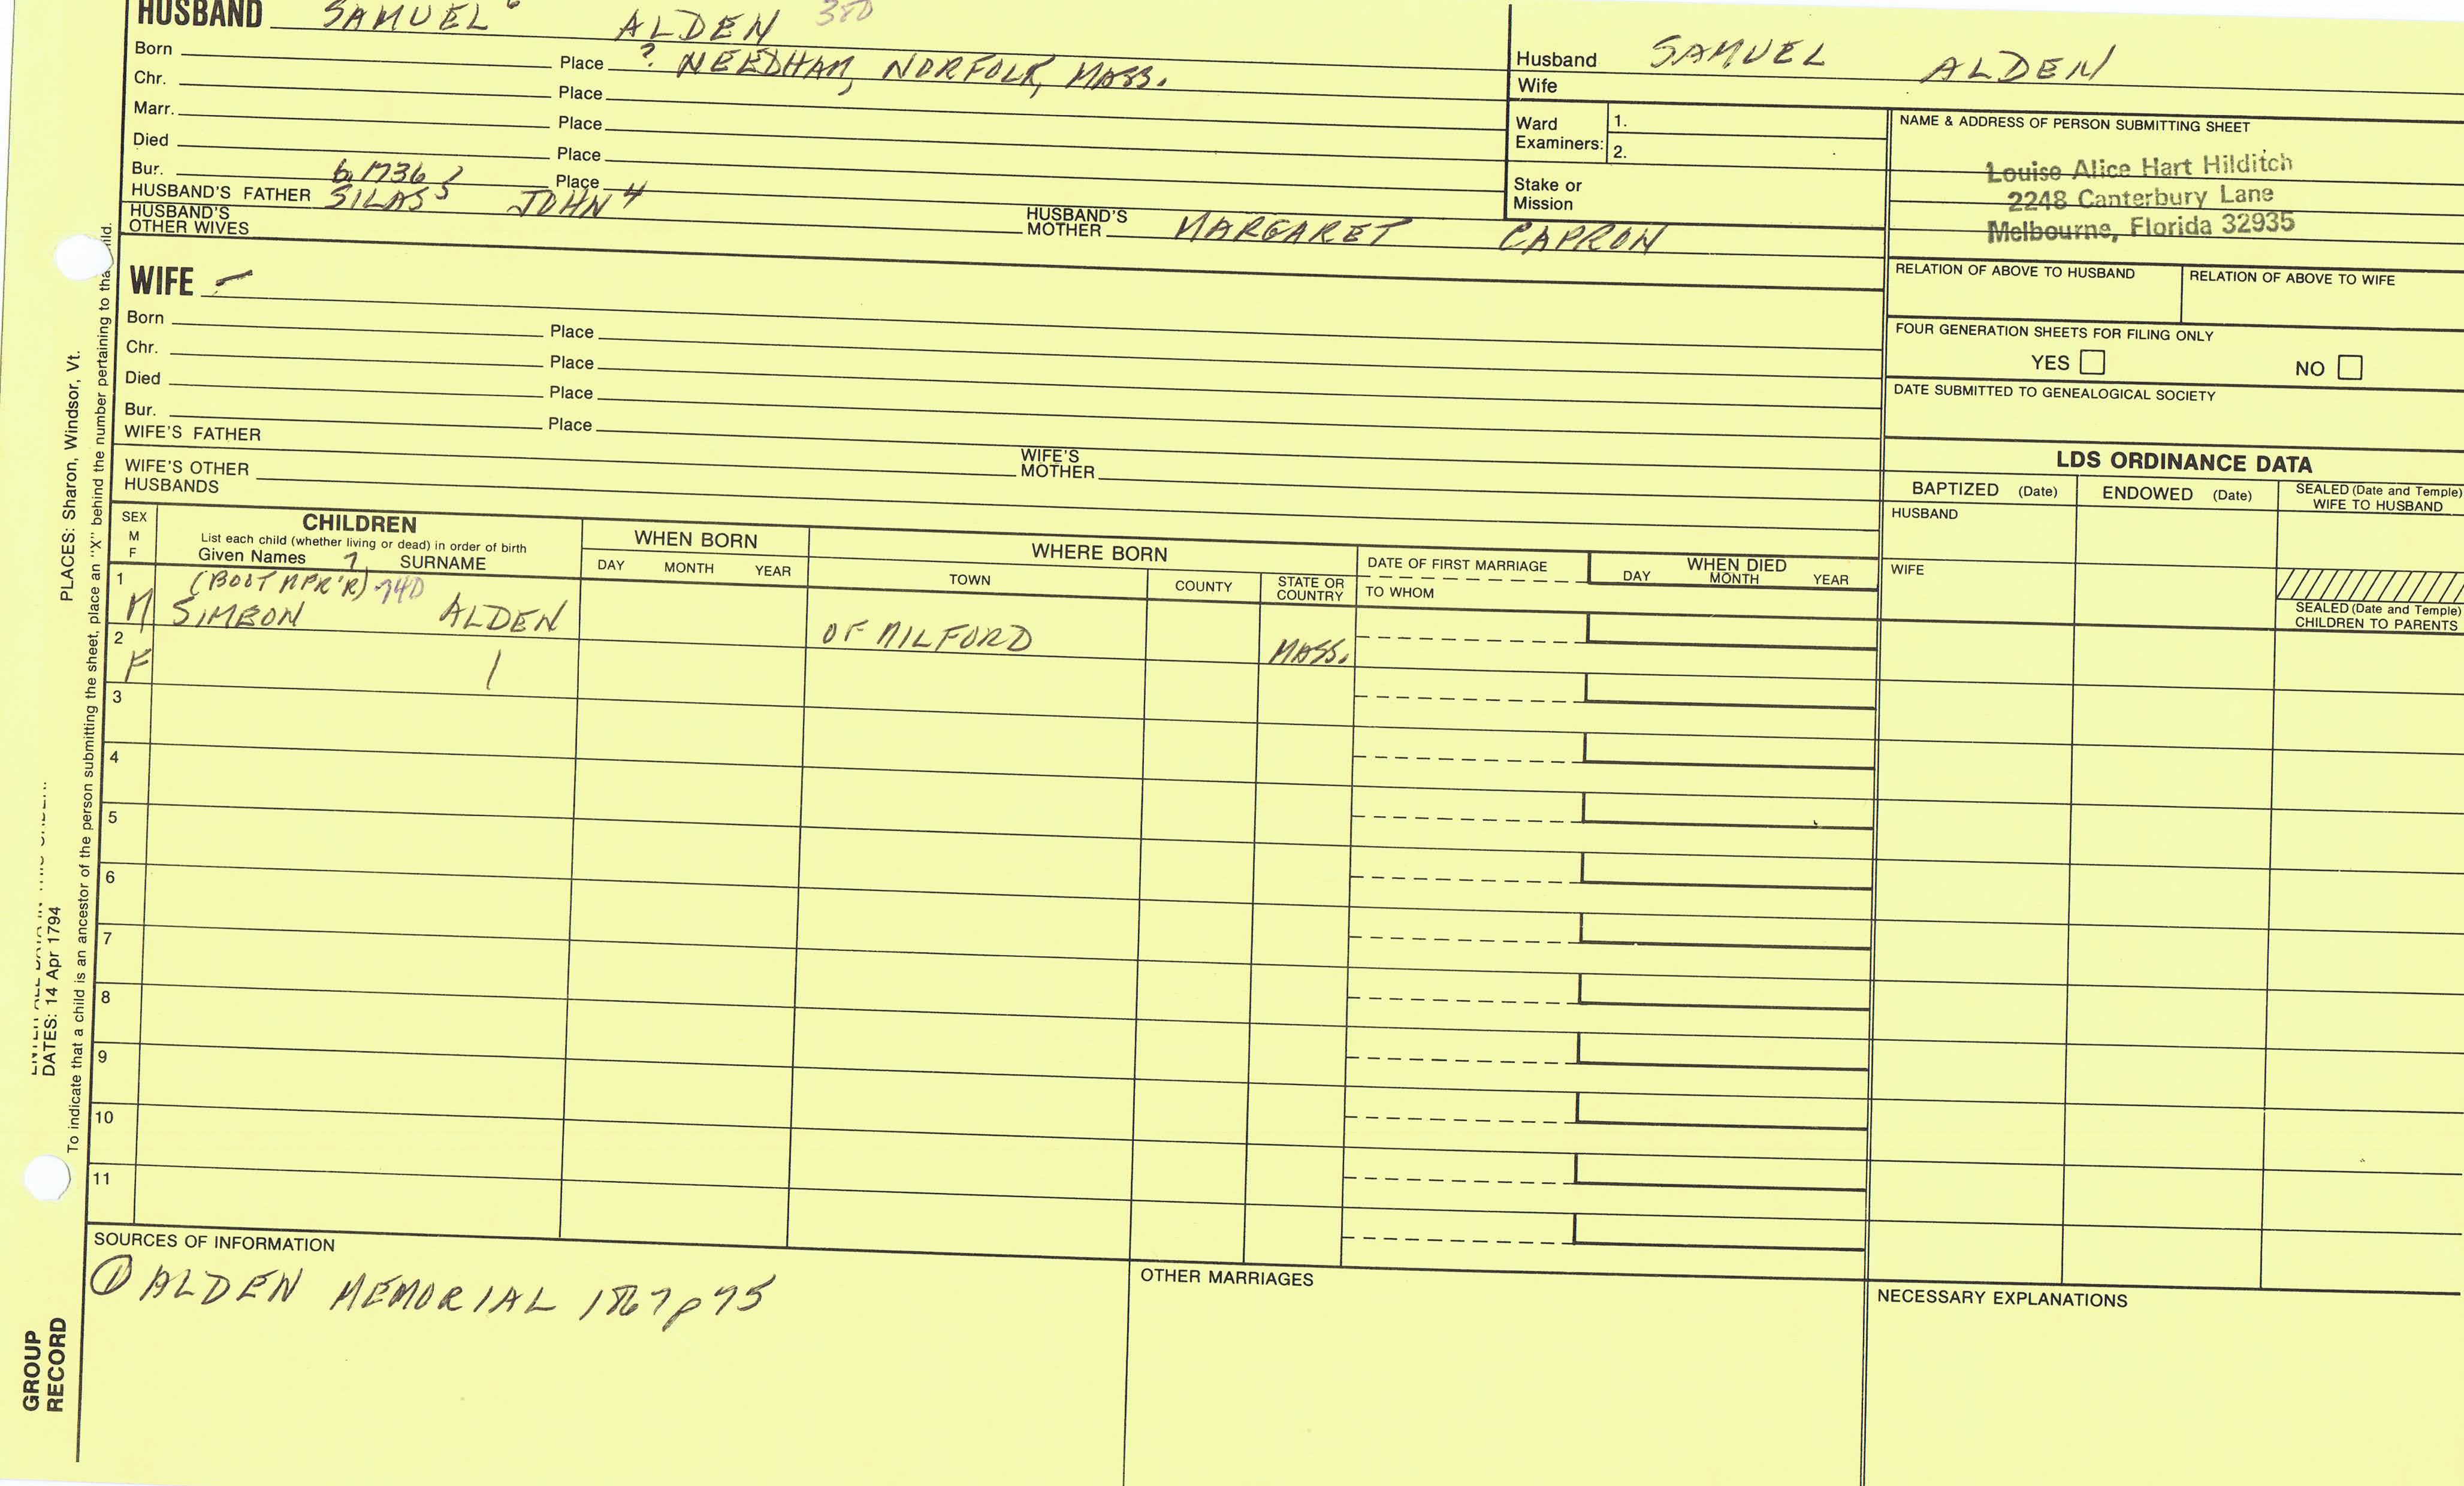 HUSBAND SAMUEL 6 ALDEN 380
Born Place ? NEEDHAM, NORFOLK, MASS.
Chr. Place
Marr. Place
Died Place
Bur. Place
b. 1736
HUSBAND'S FATHER SILAS 5 JOHN 4 HUSBAND'S MOTHER MARGARET CAPRON
HUSBAND'S OTHER WIVES
Husband SAMUEL ALDEN
Wife
Ward Examiners: 1.
2.
Stake or Mission
NAME & ADDRESS OF PERSON SUBMITTING SHEET
Louise Alice Hart Hilditch
2248 Canterbury Lane
Melbourne, Florida 32935
RELATION OF ABOVE TO HUSBAND RELATION OF ABOVE TO WIFE
FOUR GENERATION SHEETS FOR FILING ONLY
YES NO
DATE SUBMITTED TO GENEALOGICAL SOCIETY
WIFE –
Born Place
Chr. Place
Died Place
Bur. Place
WIFE'S FATHER WIFE'S MOTHER
WIFE'S OTHER HUSBANDS
LDS ORDINANCE DATA
BAPTIZED (Date) ENDOWED (Date) SEALED (Date and Temple) WIFE TO HUSBAND
HUSBAND
WIFE
SEALED (Date and Temple) CHILDREN TO PARENTS
SEX M F
CHILDREN
List each child (whether living or dead) in order of birth
Given Names SURNAME
WHEN BORN
DAY MONTH YEAR
WHERE BORN
TOWN COUNTY STATE OR COUNTRY
DATE OF FIRST MARRIAGE
TO WHOM
WHEN DIED
DAY MONTH YEAR
1 (BOOT MFR'R) 7 740
M SIMEON ALDEN OF MILFORD MASS.
2
F
3
4
5
6
7
8
9
10
11
SOURCES OF INFORMATION
① ALDEN MEMORIAL 1867 p 75
OTHER MARRIAGES
NECESSARY EXPLANATIONS
DATES: 14 Apr 1794
PLACES: Sharon, Windsor, Vt.
To indicate that a child is an ancestor of the person submitting the sheet, place an "X" behind the number pertaining to that child.
GROUP RECORD